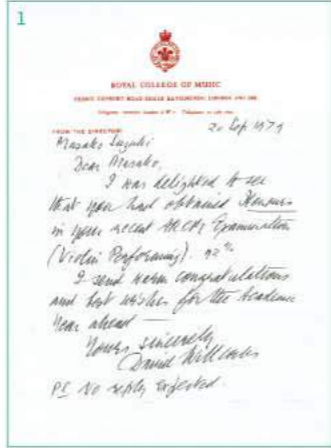 1
ROYAL COLLEGE OF MUSIC
PRINCE CONSORT ROAD SOUTH KENSINGTON, LONDON
FROM THE DIRECTOR
20 Sep 1979
Masako Suzuki
Dear Masako,
I was delighted to see
that you had obtained Honours
in your recent ARCM Examination
(Violin Performing). 92%
I send warm congratulations
and best wishes for the Academic
Year ahead —
Yours sincerely
David Willcocks
PS No reply expected.